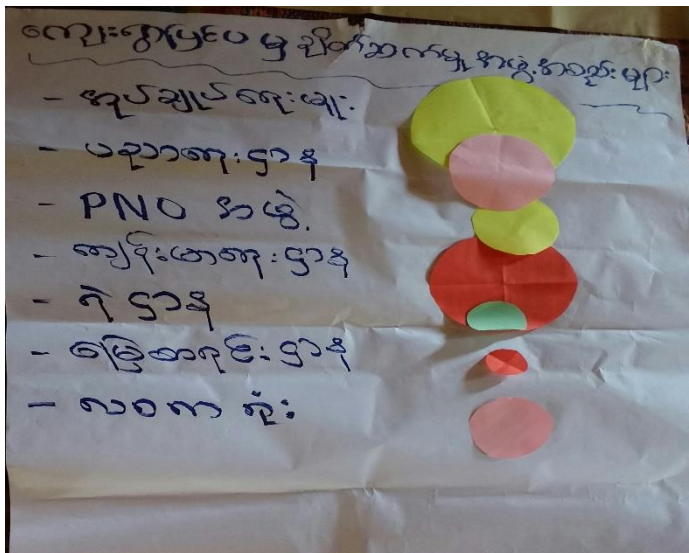 ကျေးရွာပြင်ပ မှ ချိတ်ဆက်မှု အဖွဲ့အစည်းများ
- အုပ်ချုပ်ရေးမှူး
- ပညာရေးဌာန
- PNO အဖွဲ့
- ကျန်းမာရေးဌာန
- ရဲ ဌာန
- မြေစာရင်းဌာန
- လဝက ရုံး